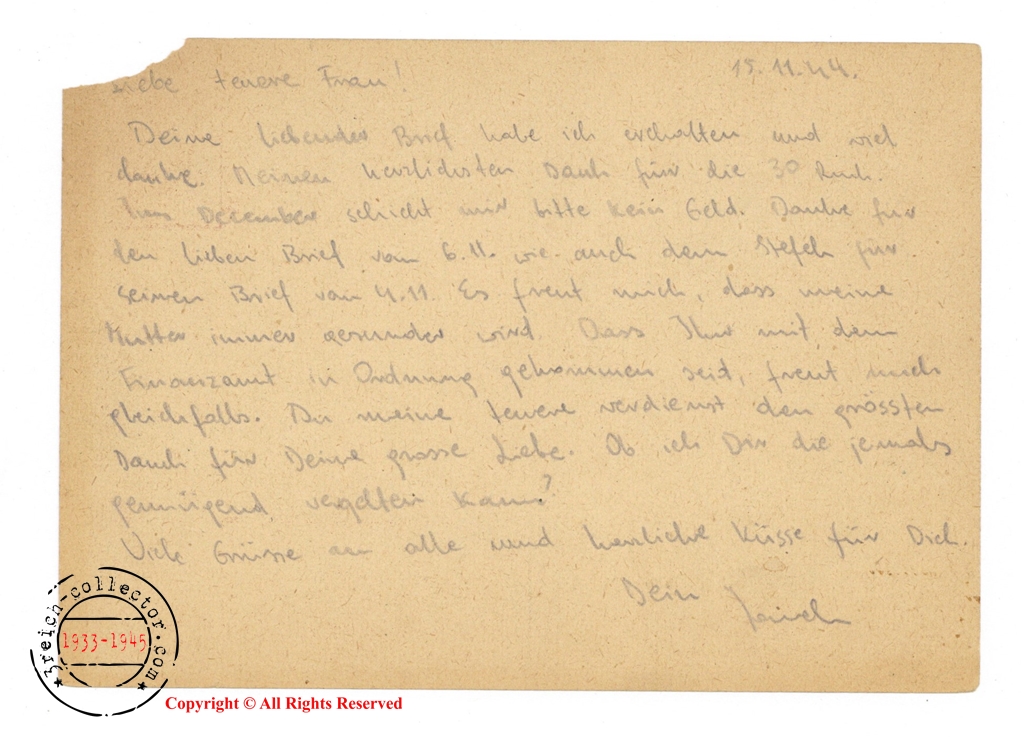 Liebe teuere Frau! 15.11.44.
Deine liebenden Brief habe ich erhalten und viel
danke. Meinen herzlichsten Dank für die 30
December schickt mir bitte kein Geld. Danke für
den lieben Brief vom 6.11. wie auch dem Stefek für
seinen Brief vom 4.11. Es freut mich, dass meine
Mutter immer gesunder wird. Dass Ihr mit dem
Finanzamt in Ordnung gekommen seid, freut mich
gleichfalls. Du meine teuere verdienst den grössten
Dank für Deine grosse Liebe. Ob ich Dir die jemals
genügend vergelten kann?
Viele Grüsse an alle und herzliche Küsse für Dich.
Dein
3reich-collector.com
1933-1945
Copyright © All Rights Reserved